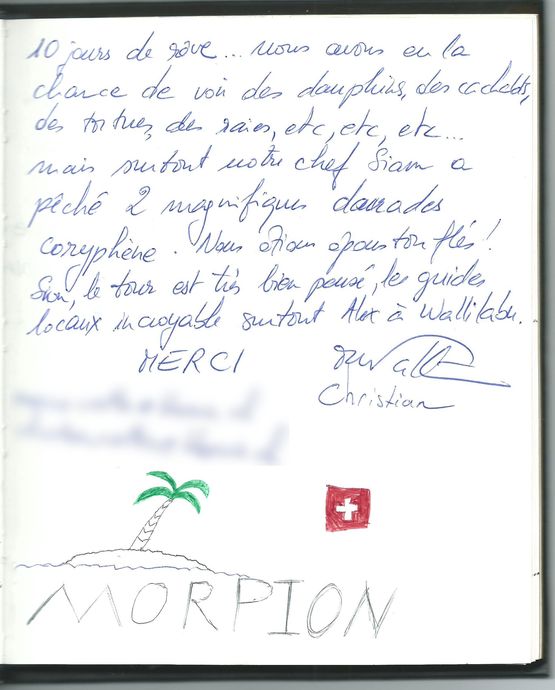 10 jours de rêve... nous avons eu la
chance de voir des dauphins, des cachalots,
des tortues, des raies, etc, etc, etc...
mais surtout notre chef Siam a
pêché 2 magnifiques daurades
coryphène. Nous étions époustouflés!
Sinon, le tour est très bien pensé, les guides
locaux incroyable surtout Alex à Wallilabu.
MERCI
Christian
MORPION